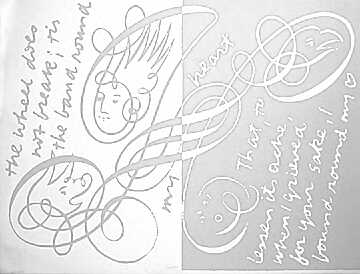 the wheel does
not break; 'tis
the band round
my
heart
That, to
lessen its ache,
when I grieved
for your sake, I
bound round my